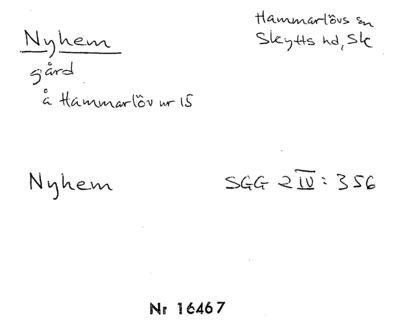 Nyhem
Hammarlövs sn
Skytts hd, Sk
gård
å Hammarlöv nr 15
Nyhem SGG 2 IV: 356
Nr 16467